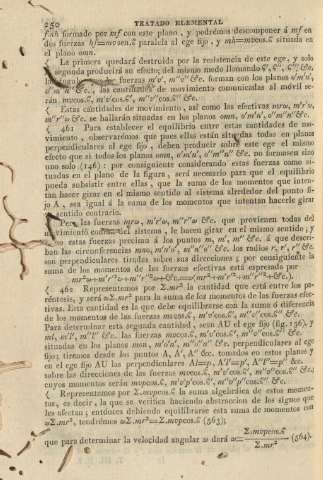 250 TRATADO ELEMENTAL
fmh formado por mf con este plano, y podrémos descomponer á mf en
dos fuerzas hf=mvsen.6, paralela al ege fijo, y mh=mvcos.6 situada en
el plano omn.
La primera quedará destruida por la resistencia de este ege, y solo
segunda producirá su efecto; del mismo modo llamando
fuerzas m'v', m''v'' &c. forman con los planos o'm'n',
o''m''n'' &c., las cantidades de movimiento comunicadas al móvil se-
rán, mvcos.6, m'v'cos.6', m''v''cos.6'' &c.
Estas cantidades de movimiento, así como las efectivas mrω, m'r'ω,
m''r''ω &c. se hallarán situadas en los planos omn, o'm'n', o''m''n'' &c.
§ 461 Para establecer el equilibrio entre estas cantidades de mo-
vimiento, observarémos que pues ellas están situadas todas en planos
perpendiculares al ege fijo, deben producir sobre este ege el mismo
efecto que si todos los planos omn, o'm'n', o''m''n'' &c. no formasen sino
uno solo (146): por consiguiente considerando estas fuerzas como si-
tuadas en el plano de la figura, será necesario para que el equilibrio
pueda subsistir entre ellas, que la suma de los momentos que inten-
tan hacer girar en el mismo sentido al sistema alrededor del punto fi-
jo A, sea igual á la suma de los momentos que intentan hacerle girar
sentido contrario.
Pero las fuerzas mrω, m'r'ω, m''r''ω &c. que previenen todas del
movimiento comun del sistema, le hacen girar en el mismo sentido; y
como estas fuerzas precisas á los puntos m, m', m'' &c., á que descri-
ban las circunferencias mno, m'n'o', m''n''o'' &c. los radios r, r', r'' &c.
son perpendiculares tirados sobre sus direcciones; por consiguiente la
suma de los momentos de las fuerzas efectivas está espresada por
mr²ω+m'r'²ω+m''r''²ω+&c.=ω(mr²+m'r'²+m''r''²+&c.).
§ 462 Representemos por Σ.mr² la cantidad que está entre los pa-
réntesis, y será ωΣ.mr² para la suma de los momentos de las fuerzas efec-
tivas. Esta cantidad es la que debe equilibrarse con la suma ó diferencia
de los momentos de las fuerzas mvcos.6, m'v'cos.6', m''v''cos.6'' &c.
Para determinar esta segunda cantidad, sean AU el ege fijo (fig. 156), y
ml, m'l', m''l'' &c. las fuerzas mvcos.6, m'v'cos.6', m''v''cos.6'' &c.
situadas en los planos omn, o'm'n', o''m''n'' &c. perpendiculares al ege
fijo; tiremos desde los puntos A, A', A'' &c. tomados en estos planos y
en el ege fijo AU las perpendiculares Al=p, A'l'=p', A''l''=p'' &c.
sobre las direcciones de las fuerzas mvcos.6, m'v'cos.6', m''v''cos.6'' &c.;
cuyos momentos serán mvpcos.6, m'v'p'cos.6', m''v''p''cos.6'' &c.
§ Representemos por Σ.mvpcos.6 la suma algebráica de estos momen-
tos, es decir, la que se verifica haciendo abstraccion de los signos que
les afectan; entonces debiendo equilibrarse esta suma de momentos con
ωΣ.mr², tendrémos ωΣ.mr²=Σ.mvpcos.6 (563);
que para determinar la velocidad angular ω dará ω=Σ.mvpcos.6/Σ.mr² (564).